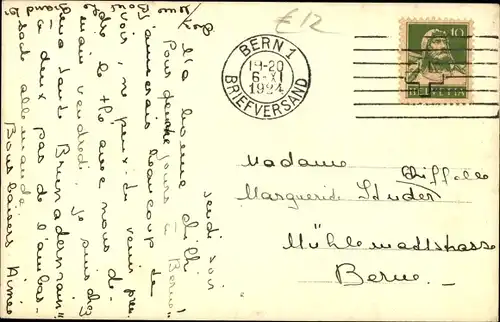 £12
BERN 1
19-20
6-XI
1924
BRIEFVERSAND
10
HELVETIA
Madame
Chiffelle
Marguerite Studer
Mühlemattstrasse
Berne.
Jeudi soir
Me à la bonne
Pour deux jours à Berne
J'aimerais beaucoup te
revoir, ne peux-tu venir pren-
dre le thé avec nous de-
main vendredi. Je suis chez
tante
à deux pas de l'ambas-
sade allemande.
Bons baisers Aimée